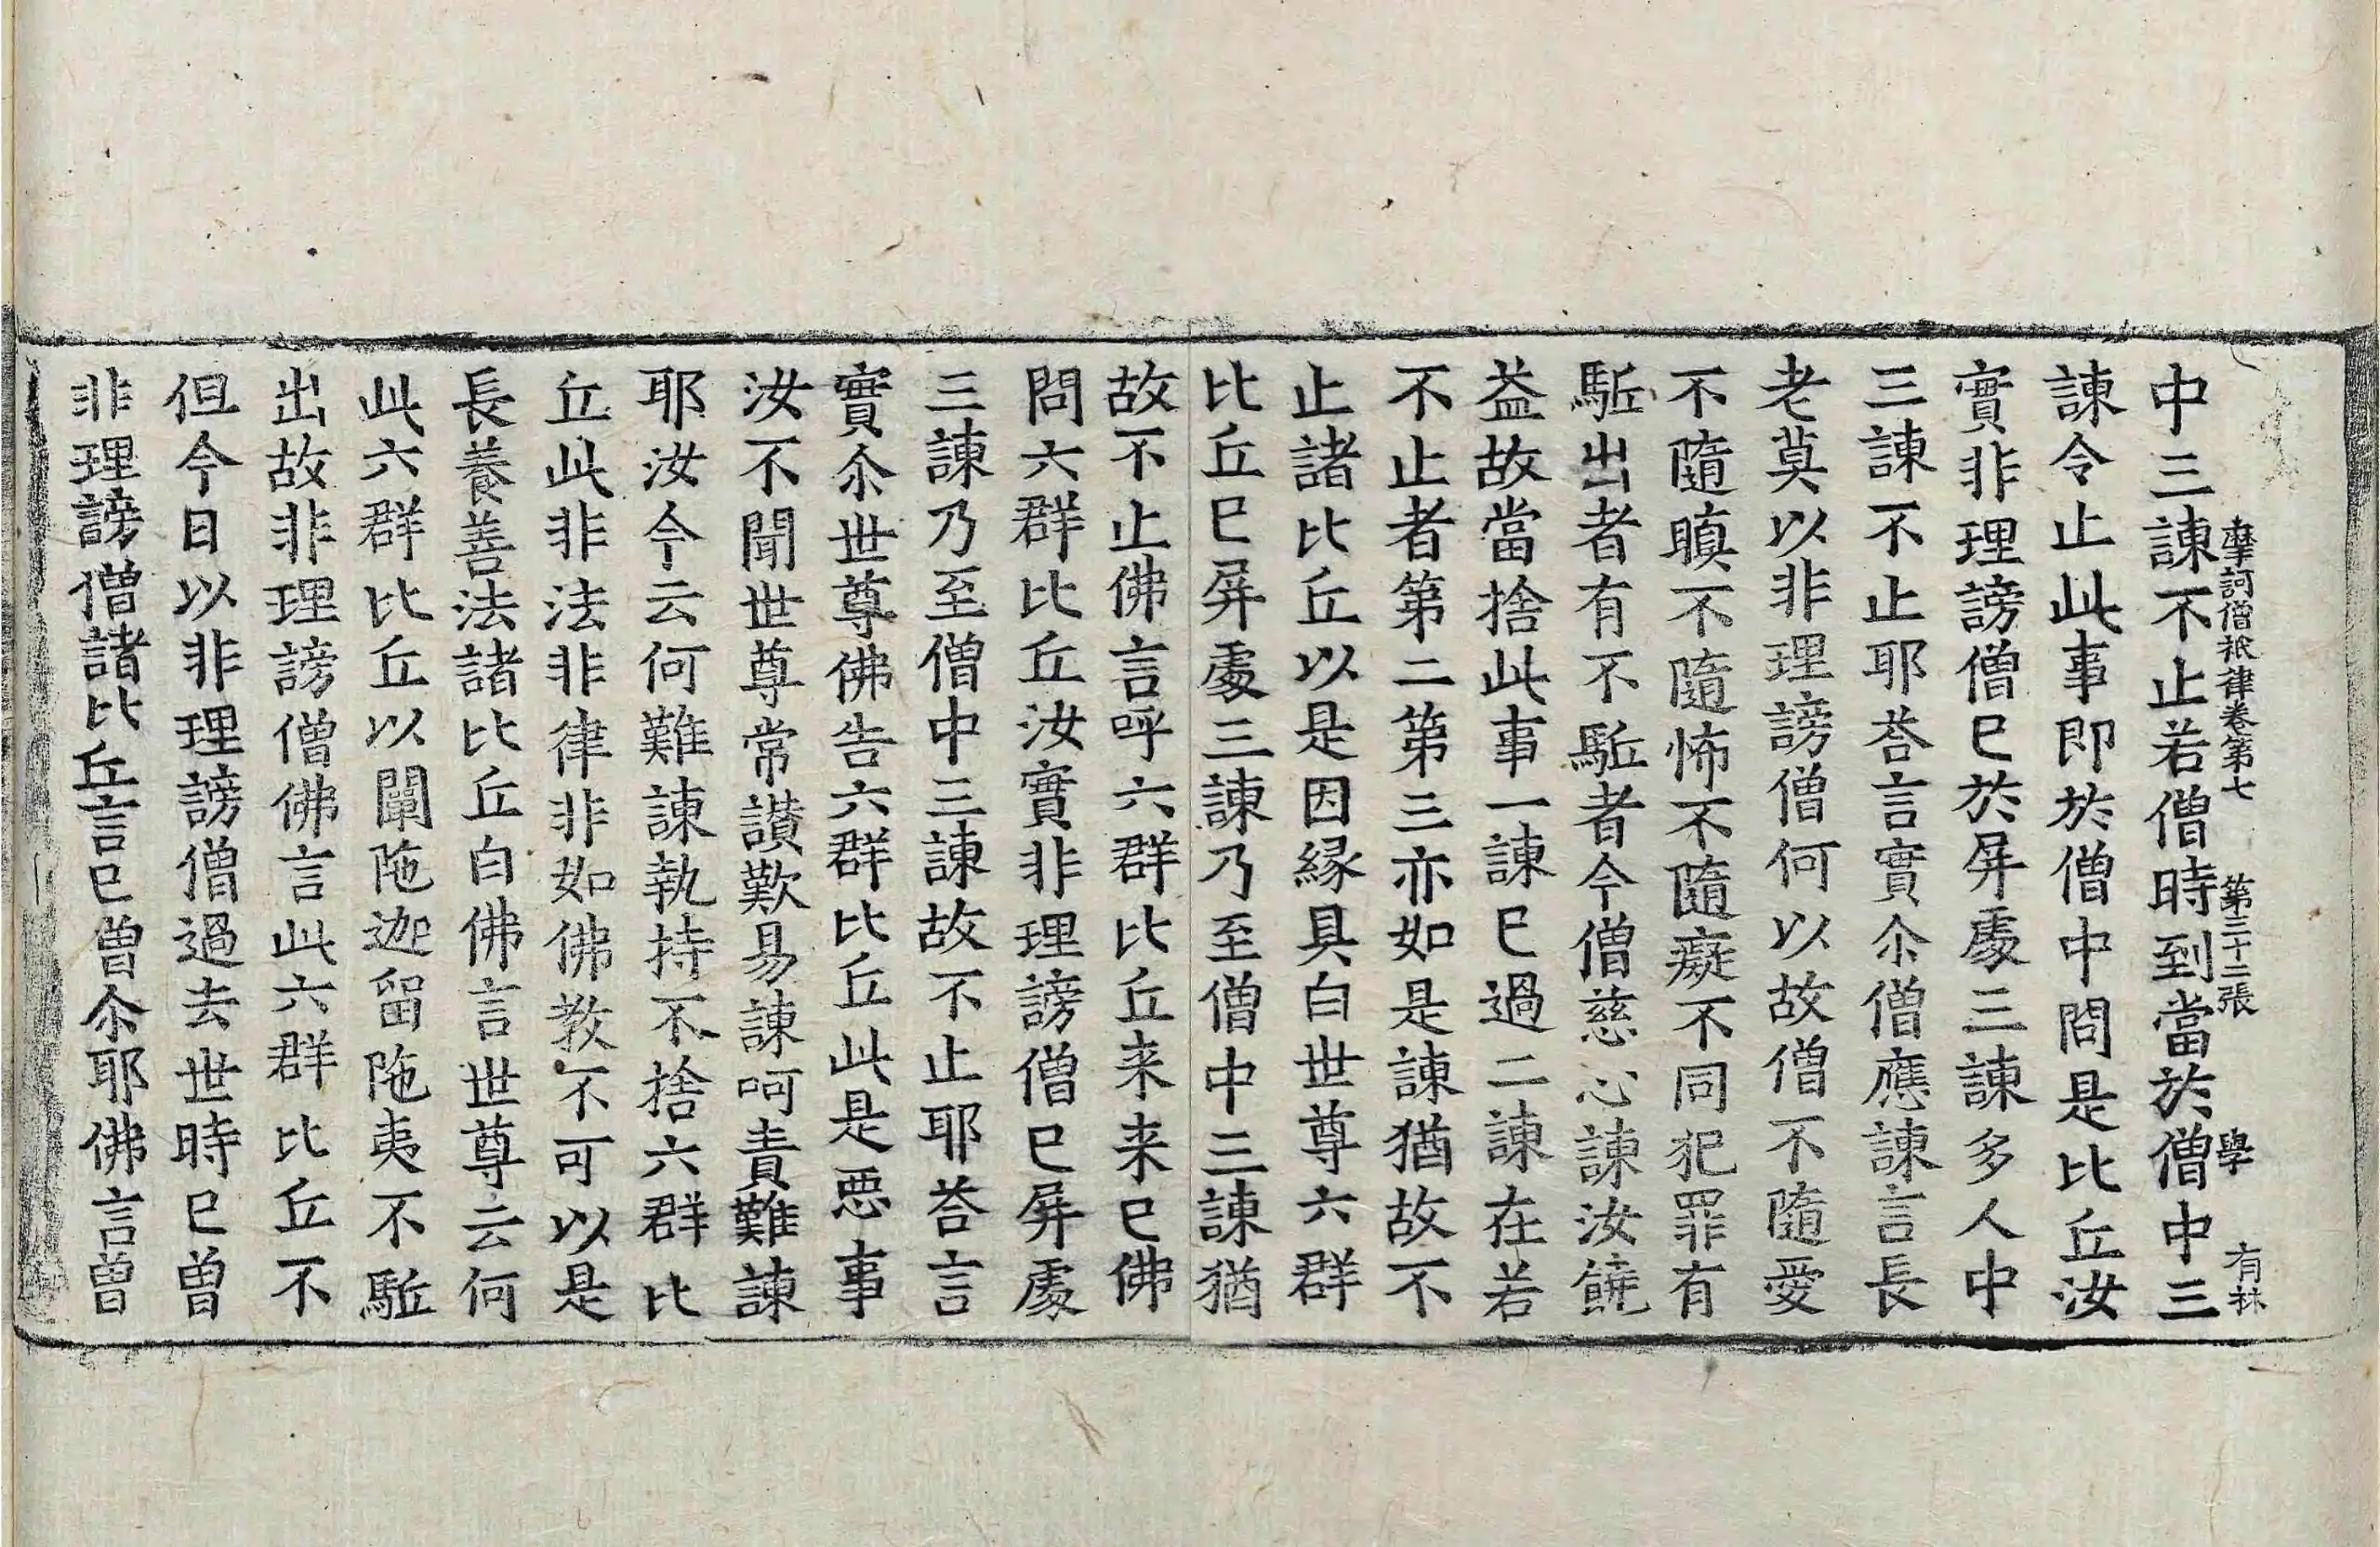 中三諫不止若僧時到當於僧中三
摩訶僧祇律卷第七　第三十二張　學　有林
諫令止此事即於僧中問是比丘汝
實非理謗僧已於屏處三諫多人中
三諫不止耶荅言實尒僧應諫言長
老莫以非理謗僧何以故僧不隨愛
不隨瞋不隨怖不隨癡不同犯罪有
駈出者有不駈者今僧慈心諫汝饒
益故當捨此事一諫已過二諫在若
不止者第二第三亦如是諫猶故不
止諸比丘以是因緣具白世尊六群
比丘已屏處三諫乃至僧中三諫猶
故不止佛言呼六群比丘来来已佛
問六群比丘汝實非理謗僧已屏處
三諫乃至僧中三諫故不止耶荅言
實尒世尊佛告六群比丘此是惡事
汝不聞世尊常讃歎易諫呵責難諫
耶汝今云何難諫執持不捨六群比
丘此非法非律非如佛教不可以是
長養善法諸比丘白佛言世尊云何
此六群比丘以闡陁迦留陁夷不駈
出故非理謗僧佛言此六群比丘不
但今日以非理謗僧過去世時已曽
非理謗僧諸比丘言已曽尒耶佛言曽